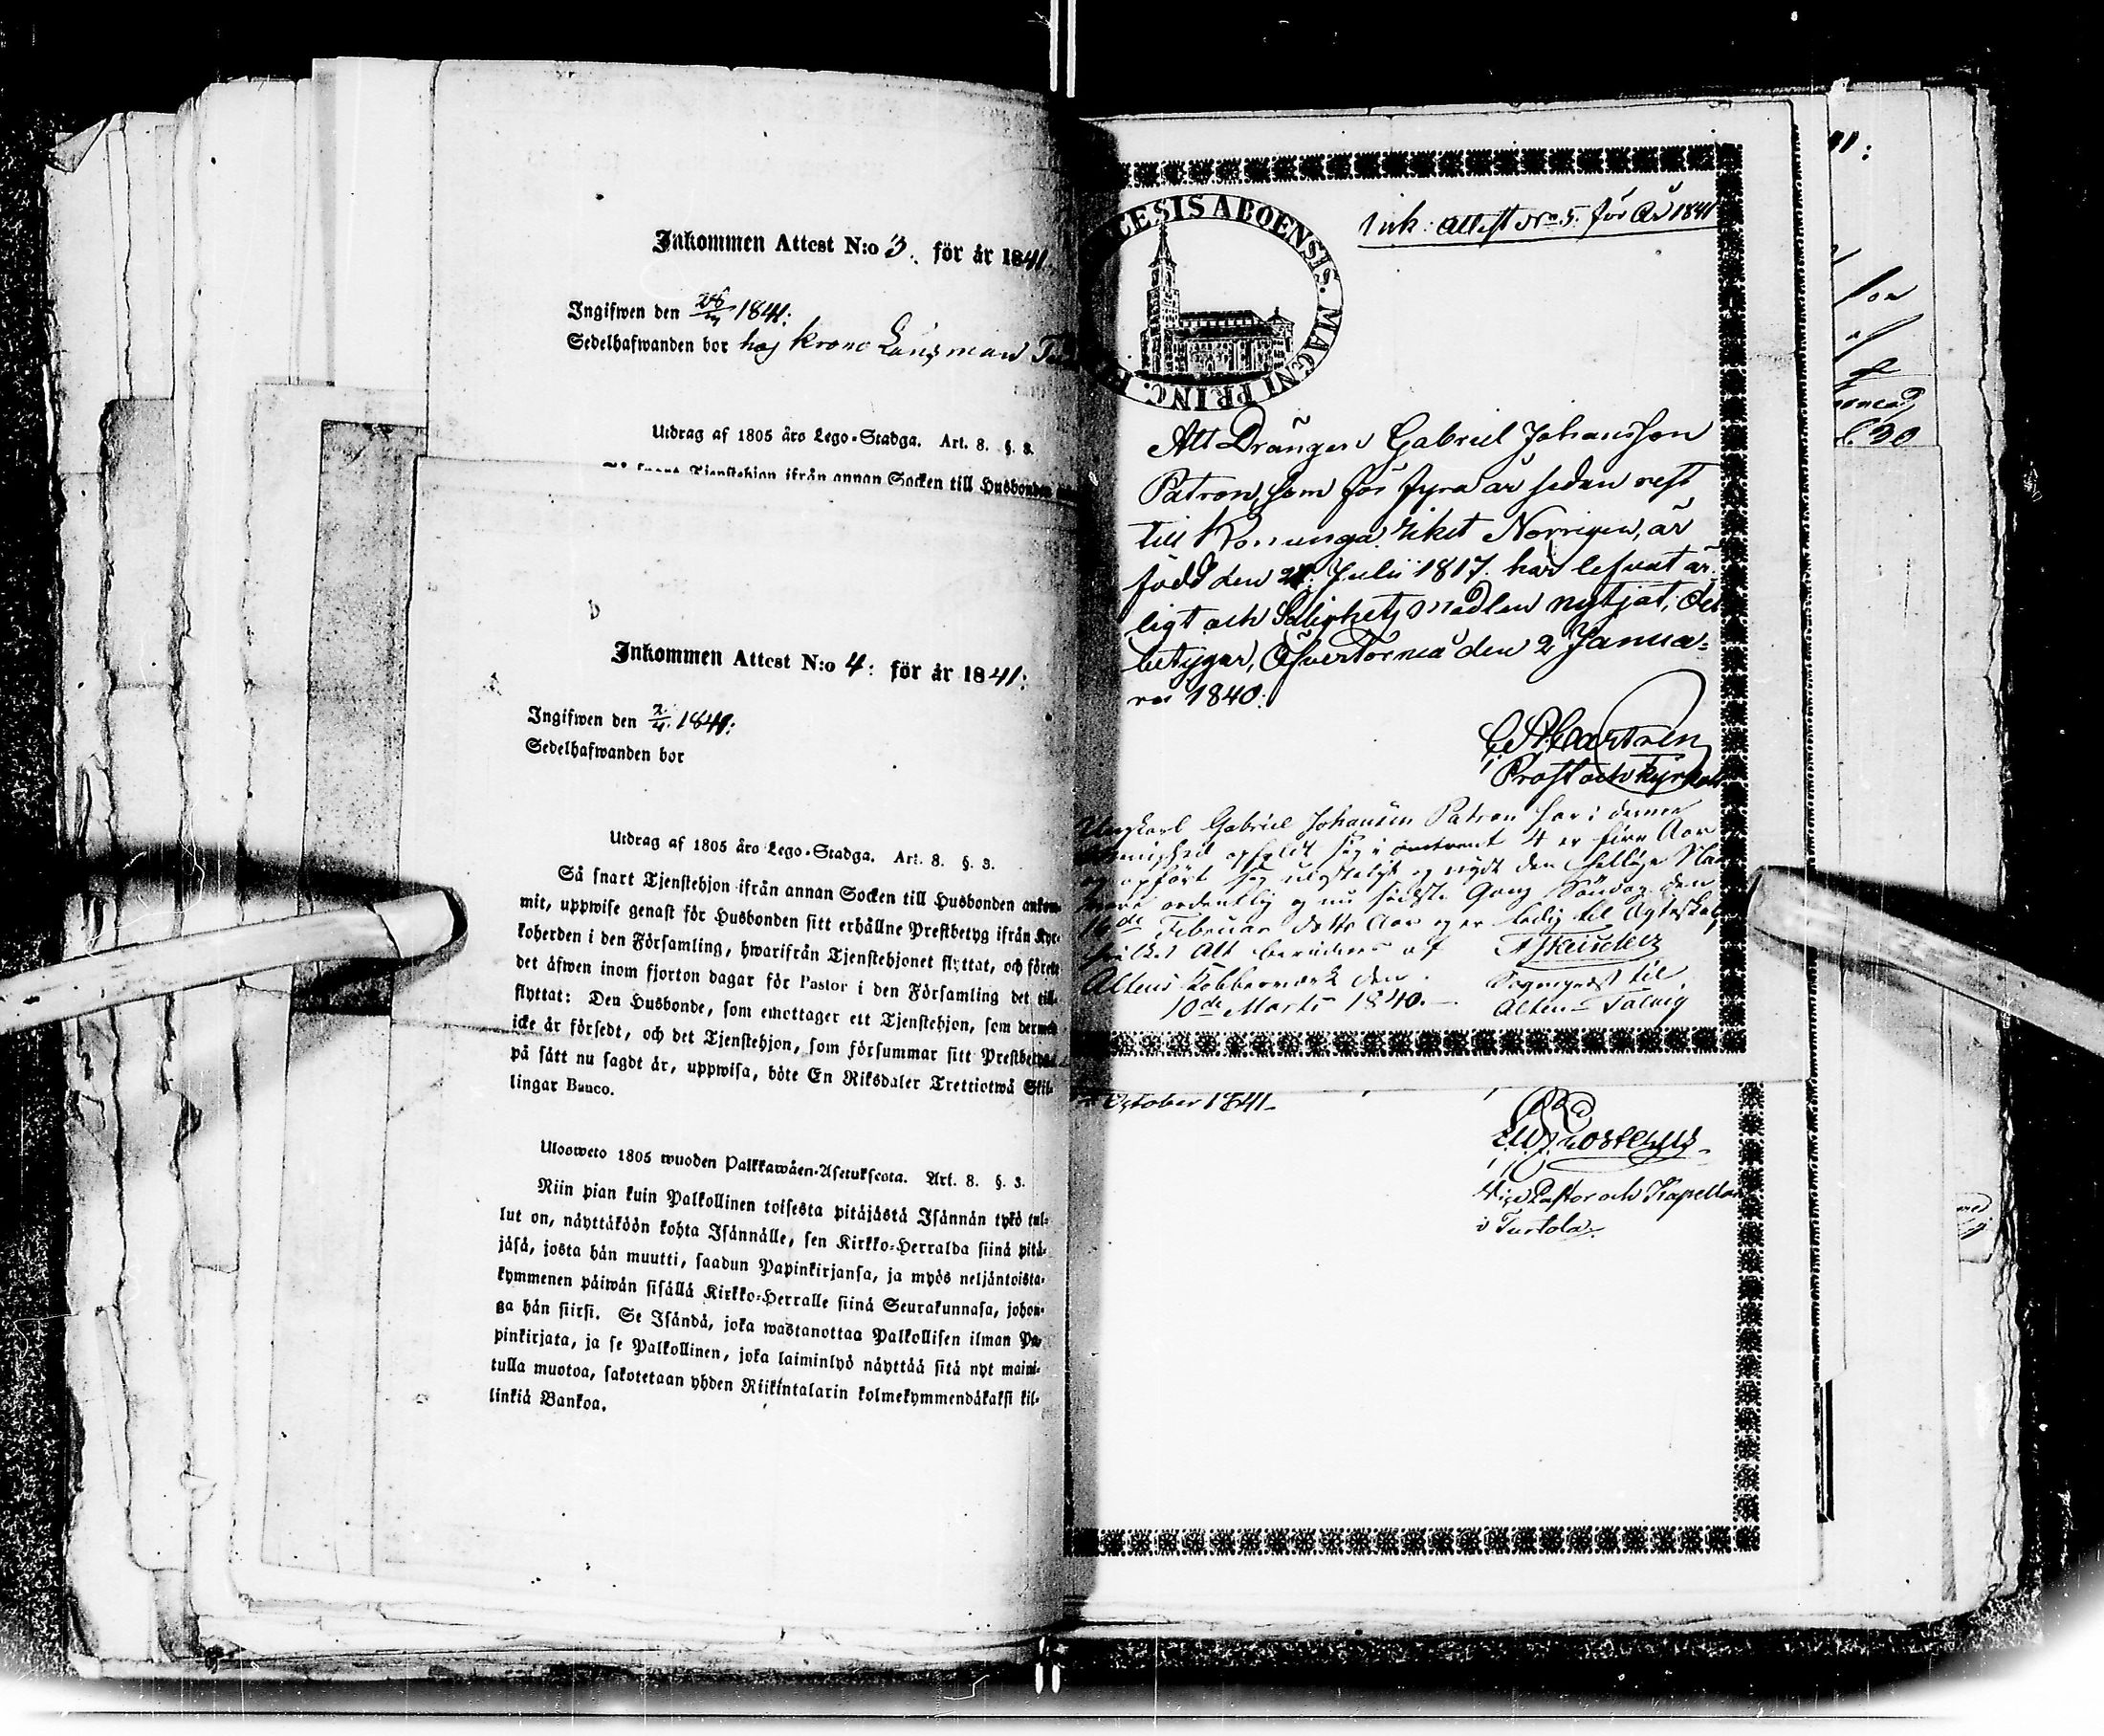 Inkommen Attest N:o 3. för år 1841.
Ingifwen den 26/3 1841:
Sedelhafwanden bor hos krono Länsman
Utdrag af 1805 års Lego-Stadga. Art. 8. §. 3.
Så snart Tjenstehjon ifrån annan Socken till Husbonden
Inkommen Attest N:o 4: för år 1841:
Ingifwen den 2/4. 1841:
Sedelhafwanden bor
Utdrag af 1805 års Lego-Stadga. Art. 8. §. 3.
Så snart Tjenstehjon ifrån annan Socken till Husbonden ankom-
mit, uppwise genast för Husbonden sitt erhållne Prestbetyg ifrån Kyr-
koherden i den Församling, hwarifrån Tjenstehjonet flyttat, och förete
det äfwen inom fjorton dagar för Pastor i den Församling det till-
flyttat: Den Husbonde, som emottager ett Tjenstehjon, som dermed
icke är försedt, och det Tjenstehjon, som försummar sitt Prestbetyg
på sätt nu sagdt är, uppwisa, böte En Riksdaler Trettiotwå Skil-
lingar Banco.
Ulosweto 1805 wuoden Palkkawäen-Asetuksesta. Art. 8. §. 3.
Niin pian kuin Palkollinen toisesta pitäjästä Isännän tykö tul-
lut on, näyttäköön kohta Isännälle, sen Kirkko-Herralda siinä pitä-
jäsä, josta hän muutti, saadun Papinkirjansa, ja myös neljäntoista-
kymmenen päiwän sisällä Kirkko-Herralle siinä Seurakunnasa, johon-
ga hän siirsi. Se Isändä, joka wastanottaa Palkollisen ilman Pa-
pinkirjata, ja se Palkollinen, joka laiminlyö näyttää sitä nyt maini-
tulla muotoa, sakotetaan yhden Riikintalarin kolmekymmendäkaksi kil-
linkiä Bankoa.
CESIS ABOENSIS. MAGNI PRINC. F
Ink: Attest No 5. för År 1841
Att Drängen Gabriel Johansson
Patron, som för fyra år sedan rest
till Konunga riket Norrigen, är
född den 21. Julii 1817. har lefvat är-
ligt och Salighets medlen nytjat; det
betygar, Öfvertorneå den 2 Janua-
rii 1840.
Castrén
Prost och Kyrkoh
Ungkarl Gabriel Johansen Patron har i denne
Menighed opholdt sig i omtrent 4 er fire Aar
og opført sig og nydt den hellige
ordentlig og nu sidste Gang Søndag den
16de Februar dette Aar og er ledig til Ægteskab
hvilket Alt bevidnes af
Altens Kobberværk den
10de Marts 1840.
Sognepræst til
Alten-Talvig
October 1841.
Vice Pastor och Kapellan
i Turtola.